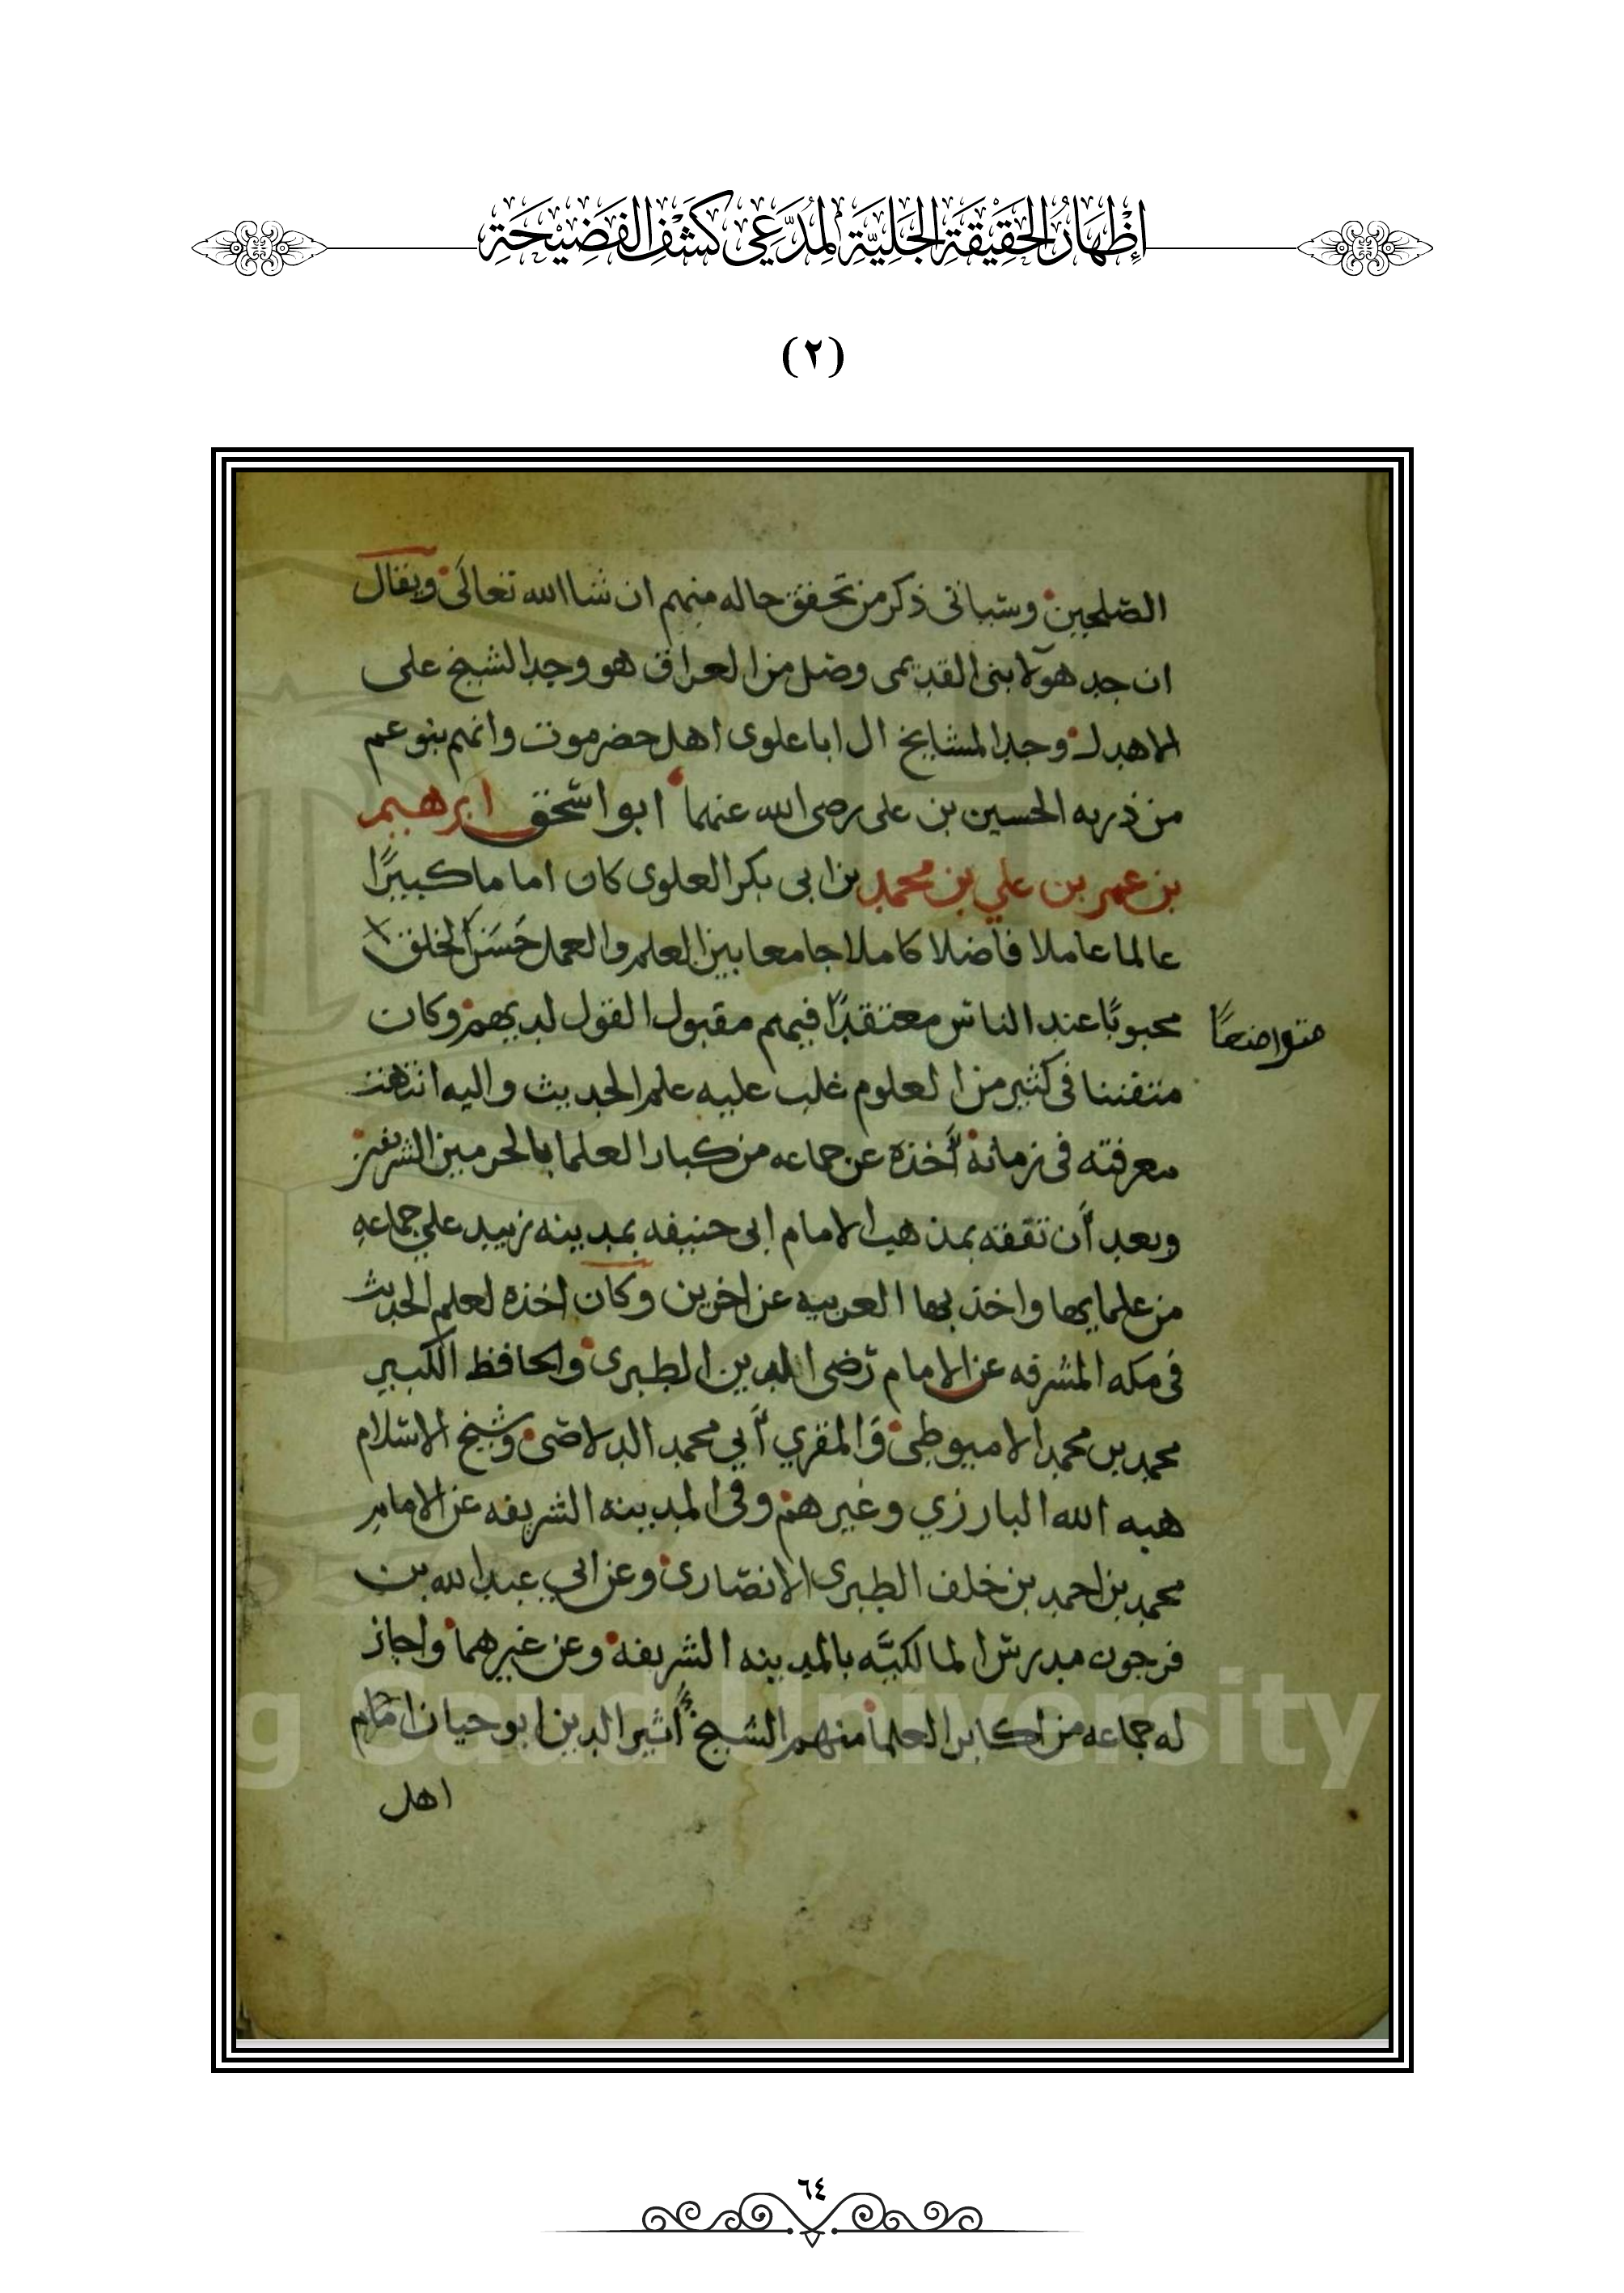 إِظْهَارُ الحَقِيْقَةِ الجَلِيَّةِ لِمُدَّعِي كَشْفِ الفَضِيْحَةِ
(٢)
الصلحين وسياتى ذكر من تحقق حاله منهم ان شاالله تعالى ويقال
ان جد هولا بنى القديمى وصل من العراق هو وجد الشيخ على
الاهدل وجد المشايخ ال اباعلوى اهل حضرموت وانهم بنو عم
من ذريه الحسين بن على رضى الله عنهما ابو اسحق ابرهيم
بن عمر بن علي بن محمد بن ابى بكر العلوى كان اماما كبيرًا
عالما عاملا فاضلا كاملا جامعا بين العلم والعمل حَسَنَ الخلق
متواضعًا
محبوبًا عند الناس معتقدًا فيهم مقبول القول لديهم وكان
متفننا فى كثير من العلوم غلب عليه علم الحديث واليه انتهت
معرفته فى زمانه أخذه عن جماعه من كبار العلما بالحرمين الشريفين
وبعد أن تفقه بمذهب الامام ابى حنيفه بمدينه زبيد علي جماعه
من علمايها واخذ بها العربيه عن اخرين وكان اخذه لعلم الحديث
فى مكه المشرفه عن الامام رضى الدين الطبرى والحافظ الكبير
محمد بن محمد الاميوطى وَالمقري أبي محمد الدلاصى وشيخ الاسلام
هبه الله البارزي وغيرهم وفى المدينه الشريفه عن الامام
محمد بن احمد بن خلف الطبرى الانصارى وعن ابي عبد الله بن
فرحون مدرس المالكيَّه بالمدينه الشريفه وعن غيرهما واجاز
له جماعه من اكابر العلما منهم الشيخ أثير الدين ابو حيان امام
اهل
g Saud University
٦٤